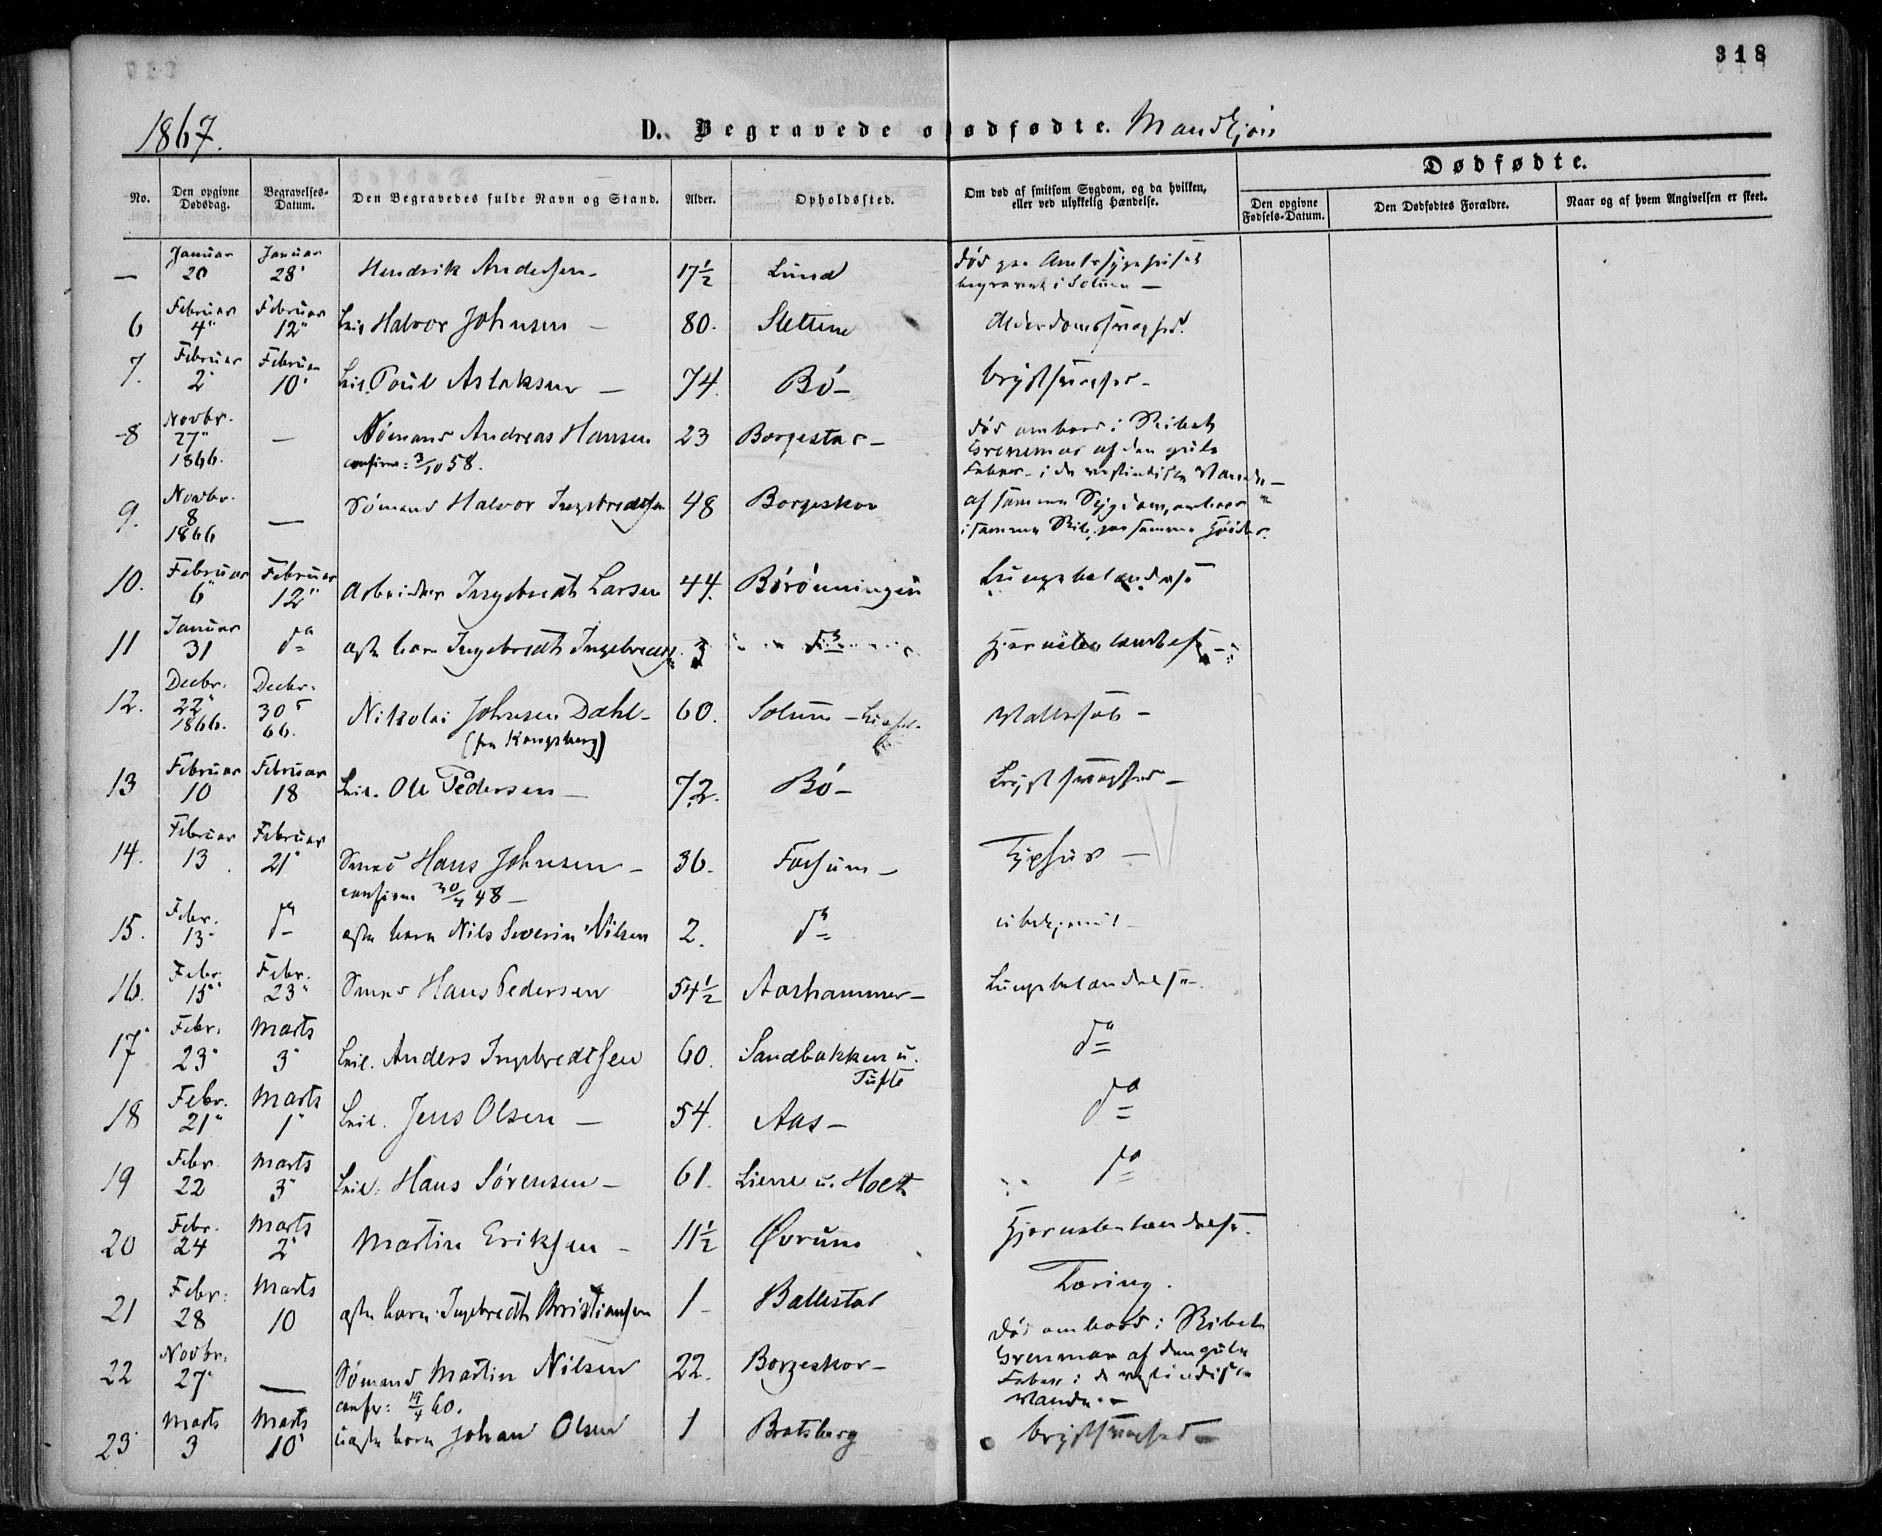 318
1867.
D. Begravede o dødfødte. Mandkjøn
No.
Den opgivne Dødsdag.
Begravelses-Datum.
Den Begravedes fulde Navn og Stand.
Alder.
Opholdssted.
Om død af smitsom Sygdom, og da hvilken, eller ved ulykkelig Hændelse.
Dødfødte.
Den opgivne Fødsels-Datum.
Den Dødfødtes Forældre.
Naar og af hvem Angivelsen er skeet.
— Januar 20 Januar 28 Hendrik Andersen – 17½ Lund død paa Amtssygehuset begravet i Solum —
6 Februar 4 Februar 12 Halvor Johnsen — 80. Slettene Alderdomssvaghed.
7. Februar 2 Februar 10 Poul Aslaksen — 74. Bö – brystsvaghed –
8 Novbr. 27 1866. — Sömand Andreas Hansen 23 Borgestad – død ombord i Skibet Grenmar af den gule Feber i de vestindiske Vande –
confirm: 3/10 58.
9. Novbr. 8 1866 — Sömand Halvor Ingebredtsen 48 Borgeskov af samme Sygdom, ombord i samme Skib, paa samme
10. Februar 6 Februar 12 Arbeider Ingebredt Larsen 44. Börönningen Lungebetændelse
11 Januar 31 do ægte barn Ingebredt Ingebredts. 3 do Hjernebetændelse –
12. Decbr. 22 1866. Decbr. 30 66. Nikolai Johnsen Dahl – 60. Solum – Vattersot –
(fra Kongsberg)
13 Februar 10 Februar 18 Ole Pedersen — 72. Bö – Brystsvaghed –
14. Februar 13 Februar 21 Hans Johnsen – 36. Fossum – Typhus —
confirm 30/4 48 –
15. Febr. 13 do ægte barn Nils Severin Nilsen 2. do ubekjendt –
16. Febr. 15 Febr. 23 Hans Pedersen 54½ Aashammer – Lungebetændelse –
17 Febr. 23 Marts 3 Anders Ingebredtsen 60. Sandbakken u. Tufte do
18 Febr. 21 Marts 1 Jens Olsen — 54. Aas – do
19 Febr. 22 Marts 3 Hans Sörensen – 61. Lierne u. Holt do
20 Febr. 24 Marts 2 Martin Eriksen – 11½ Øvrum Hjernebetændelse.
21 Febr. 28 Marts 10 ægte barn Ingebredt Christiansen 1 – Ballestad Tæring.
22 Novbr. 27 — Sömand Martin Nilsen 22. Borgeskov – død ombord i Skibet Grenmar af den gule Feber i de vestindiske Vande. –
confir: 15/4 60.
23 Marts 3 Marts 10 uægte barn Johan Olsen 1 Bratsberg brystsvaghed –